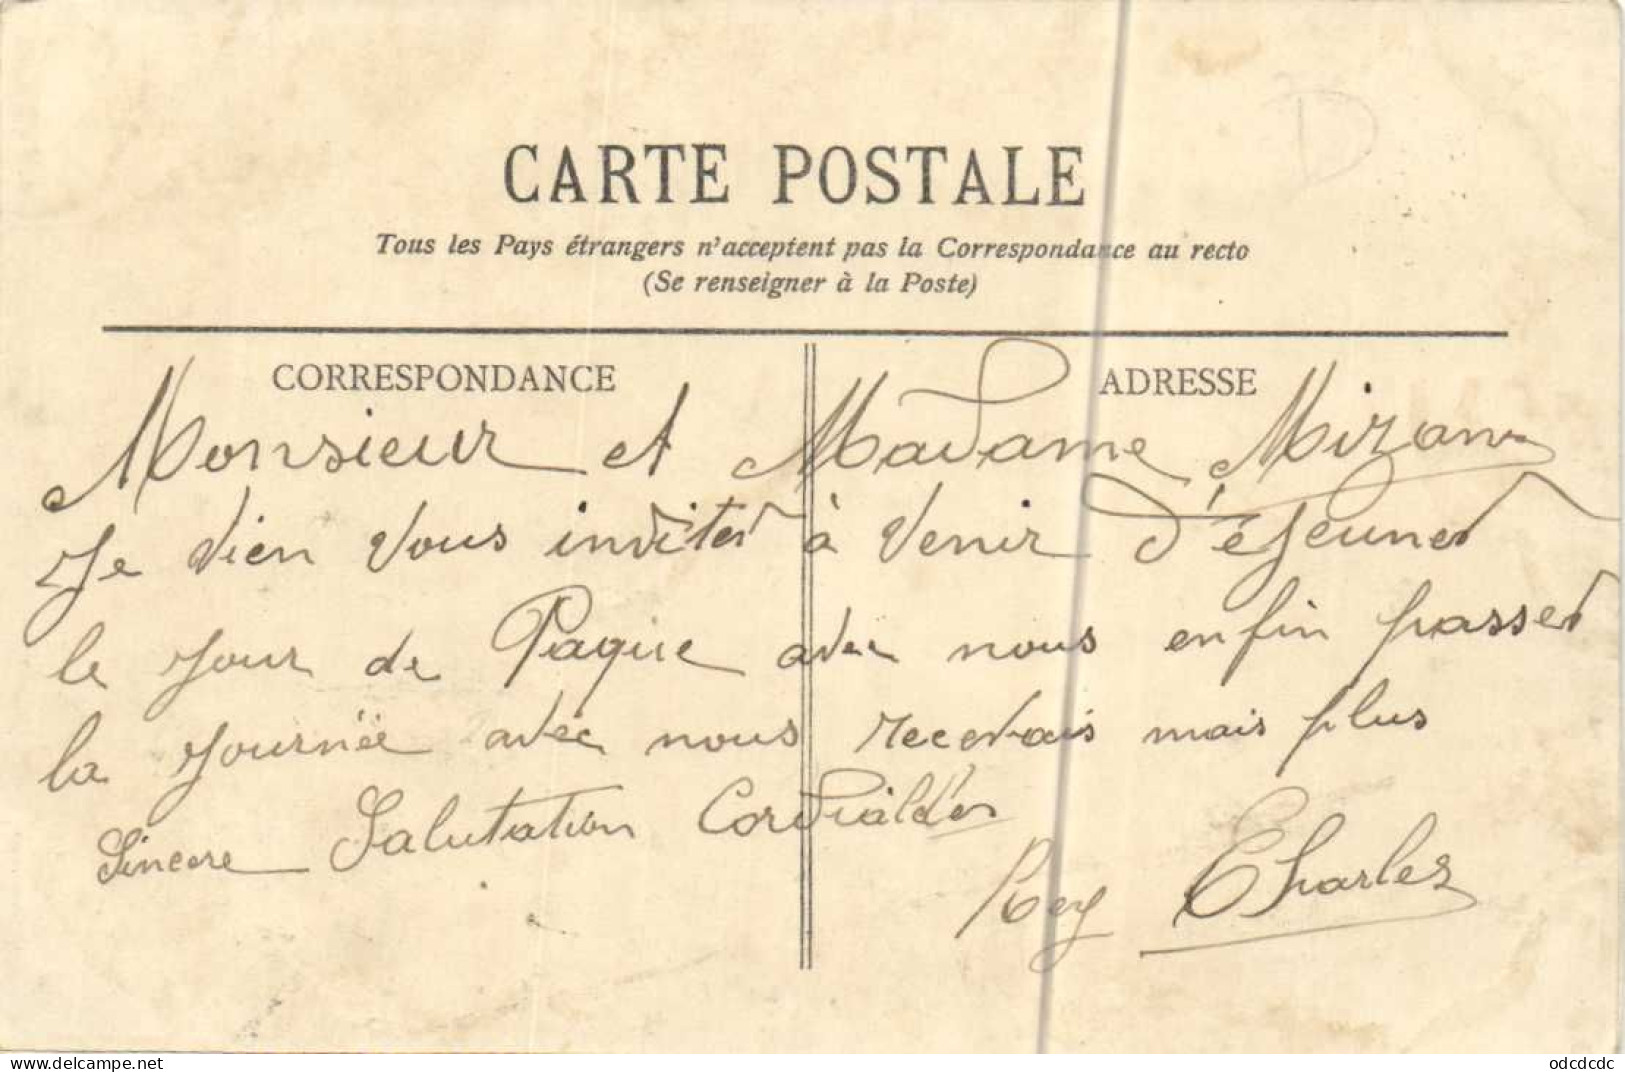 D
CARTE POSTALE
Tous les Pays étrangers n'acceptent pas la Correspondance au recto
(Se renseigner à la Poste)
CORRESPONDANCE
ADRESSE
Monsieur et Madame
Je vien vous inviter à venir d'éjeuner
le jour de Paque avec nous enfin passer
la journée avec nous recevais mais plus
Sincere Salutation
Rey Charles
www.delcampe.net
odcdcdc